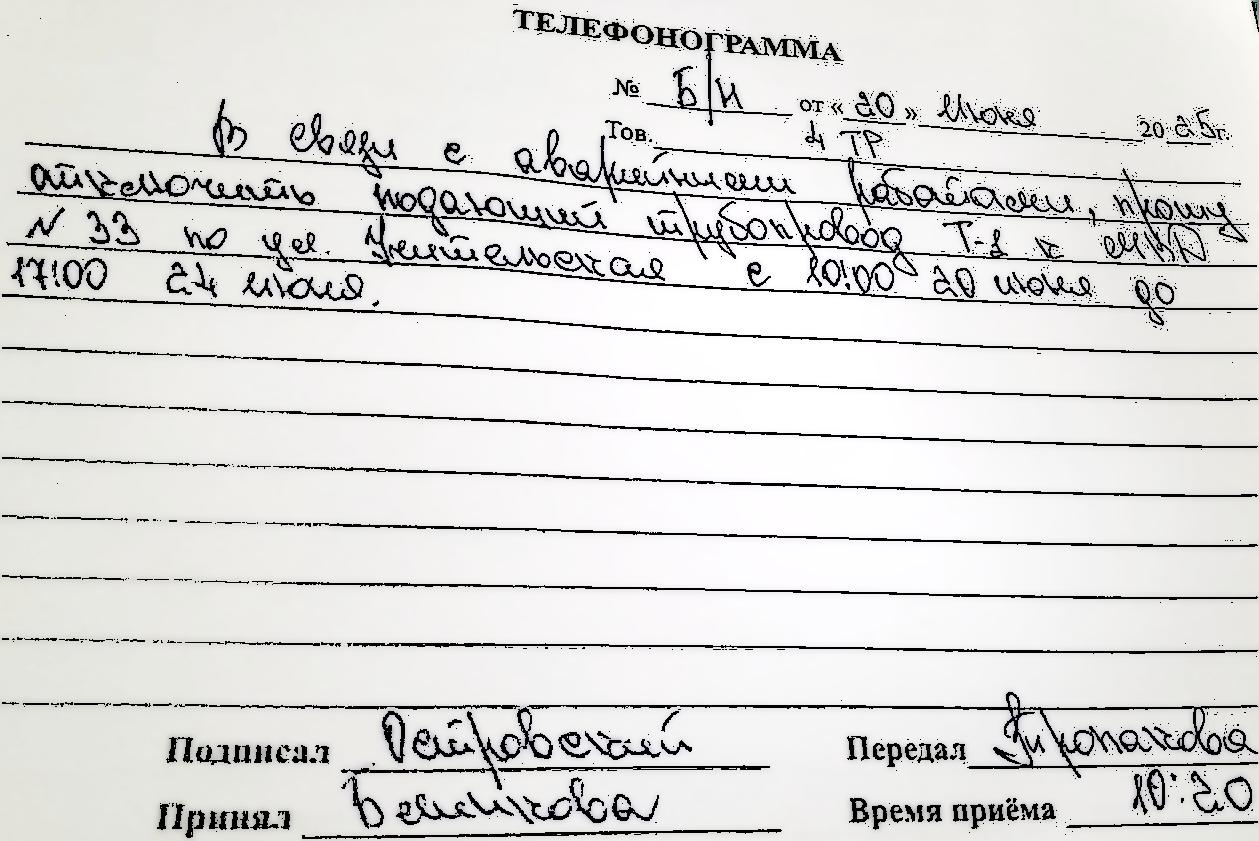 ТЕЛЕФОНОГРАММА
№ Б/Н от «20» июня 2025г.
Тов. 4 ТР
В связи с аварийными работами, прошу
отключить подающий трубопровод Т-1 к МКД
N 33 по ул. Учительская с 10:00 20 июня до
17:00 24 июня.
Подписал Островский Передал
Принял Времяприёма 10:20